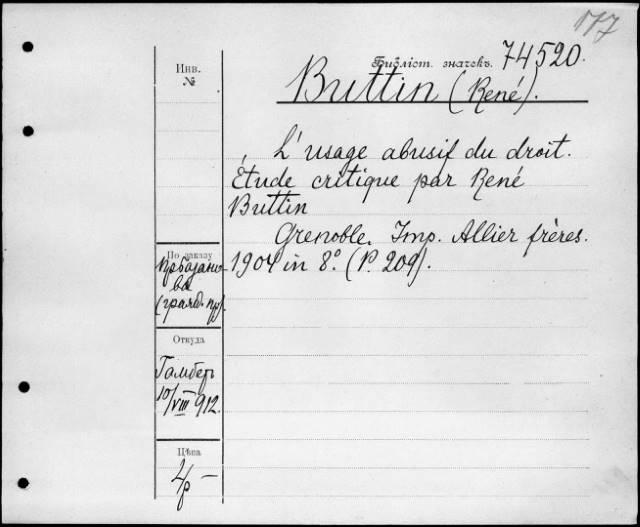 177
Библіот. значекъ. 74520.
Инв.
№
Buttin (René).
L'usage abusif du droit.
Étude critique par René
Buttin
Grenoble. Imp. Allier frères.
1904 in 8° (P. 209).
По заказу
(гражд. пр).
Откуда
Гамбер
10/VIII 912.
Цѣна
4р —